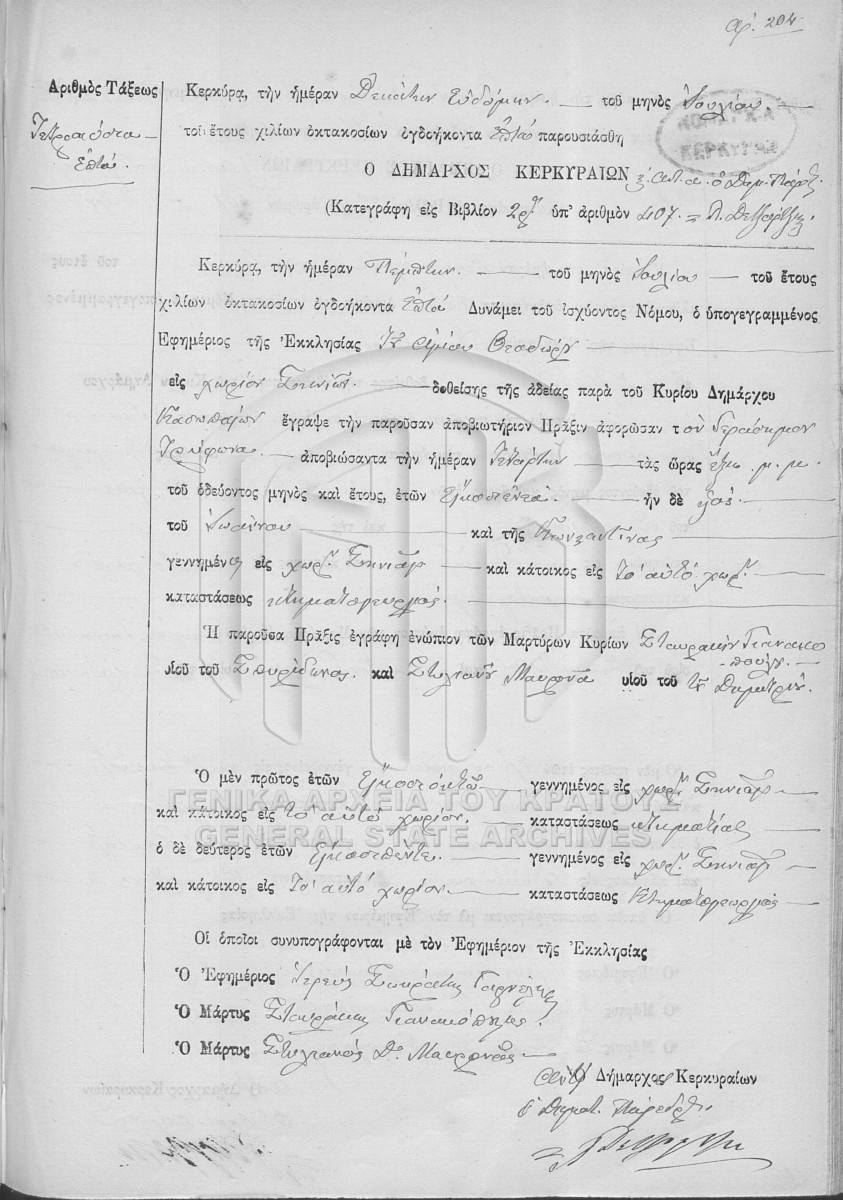 Ἀρ. 204
Ἀριθμὸς Τάξεως
Τετρακόσια
Ἑπτά.
Κερκύρᾳ, τὴν ἡμέραν Δεκάτην Ἑβδόμην. τοῦ μηνὸς Ἰουλίου.
τοῦ ἔτους χιλίων ὀκτακοσίων ὀγδοήκοντα Ἑπτά παρουσιάσθη
ΝΟΜΑΡΧΙΑ
ΚΕΡΚΥΡΑΣ
Ὁ ΔΗΜΑΡΧΟΣ ΚΕΡΚΥΡΑΙΩΝ ὁ Δημ. Πάρεδ.
(Κατεγράφη εἰς Βιβλίον 2ον ὑπ' ἀριθμὸν 407.
Κερκύρᾳ, τὴν ἡμέραν Πέμπτην. τοῦ μηνὸς Ἰουλίου τοῦ ἔτους
χιλίων ὀκτακοσίων ὀγδοήκοντα Ἑπτά Δυνάμει τοῦ ἰσχύοντος Νόμου, ὁ ὑπογεγραμμένος
Ἐφημέριος τῆς Ἐκκλησίας Ἁγίου Θεοδώρου
εἰς χωρίον Σινιῶν. δοθείσης τῆς ἀδείας παρὰ τοῦ Κυρίου Δημάρχου
Κασωπαίων ἔγραψε τὴν παροῦσαν ἀποβιωτήριον Πρᾶξιν ἀφορῶσαν τὸν Γεράσιμον
Τρύφωνα. ἀποβιώσαντα τὴν ἡμέραν Τετάρτην τὰς ὥρας ἕξ μ.μ.
τοῦ ὁδεύοντος μηνὸς καὶ ἔτους, ἐτῶν ἦν δὲ υἱός
τοῦ Ἰωάννου καὶ τῆς Κωνσταντίνας
γεννημένος εἰς χωρ. Σινιῶν καὶ κάτοικος εἰς Τὸ αὐτό χωρ.
καταστάσεως κτηματογεωργός.
Ἡ παροῦσα Πρᾶξις ἐγράφη ἐνώπιον τῶν Μαρτύρων Κυρίων Σταυράκην Γιανακό
πουλον.
υἱοῦ τοῦ Σπυρίδωνος. καὶ Στυλιανὸν Μαυρωνᾶ υἱοῦ τοῦ Δημητρίου.
Ὁ μὲν πρῶτος ἐτῶν Εἰκοσιοκτώ γεννημένος εἰς χωρ. Σινιῶν
ΓΕΝΙΚΑ ΑΡΧΕΙΑ ΤΟΥ ΚΡΑΤΟΥΣ
καὶ κάτοικος εἰς τὸ αὐτό χωρίον. καταστάσεως κτηματίας
GENERAL STATE ARCHIVES
ὁ δὲ δεύτερος ἐτῶν Εἰκοσιπέντε. γεννημένος εἰς χωρ. Σινιῶν
καὶ κάτοικος εἰς Τὸ αὐτό χωρίον. καταστάσεως Κτηματογεωργός
Οἱ ὁποῖοι συνυπογράφονται μὲ τὸν Ἐφημέριον τῆς Ἐκκλησίας
Ὁ Ἐφημέριος Ἱερεύς Σωκράτης
Ὁ Μάρτυς Σταυράκης Γιανακόπουλος.
Ὁ Μάρτυς Στυλιανός Δ. Μαυρωνᾶς
Ὁ Δήμαρχος Κερκυραίων
ὁ Δημοτ. Πάρεδρος